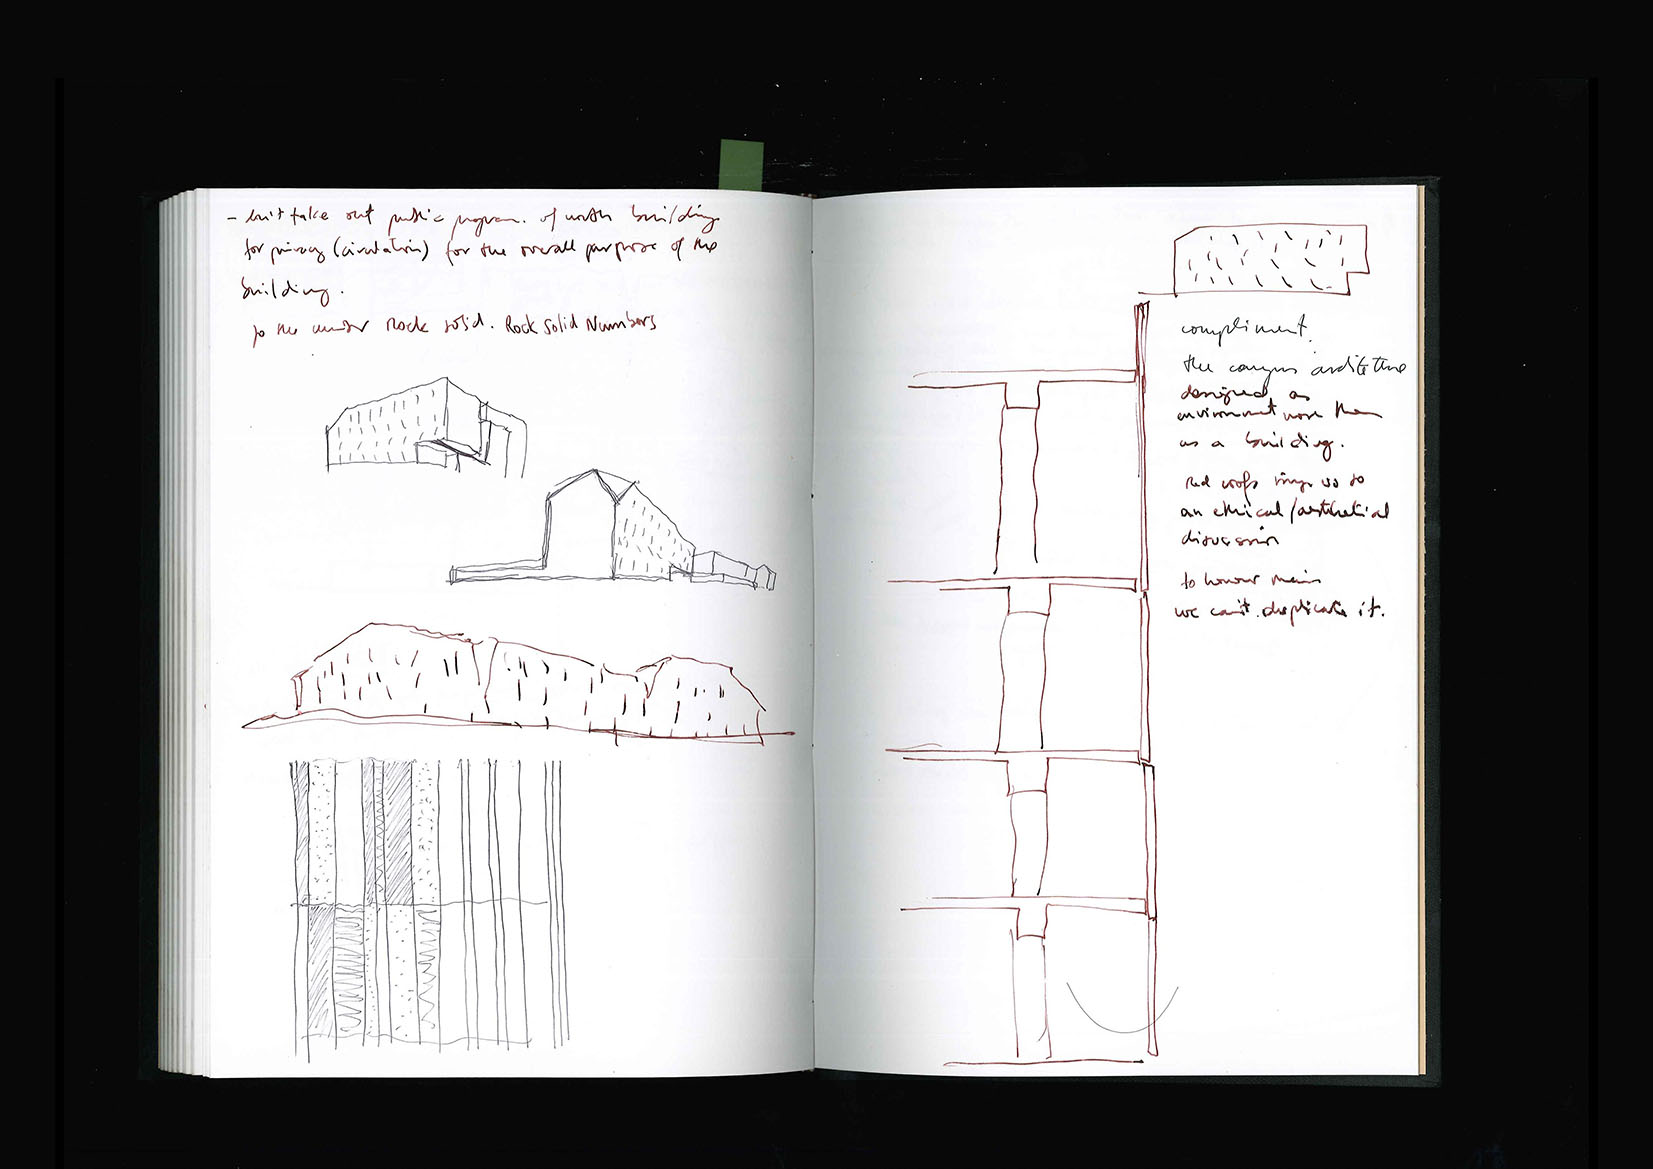 - don't take out public program. of north building
for privacy (circulation) for the overall purpose of the
building.
to the under Rock solid. Rock Solid Numbers
compliment.
the campus architecture
designed as
environment more than
as a building.
red roofs us to
an ethical/aesthetical
discussion
to honour main
we can't duplicate it.